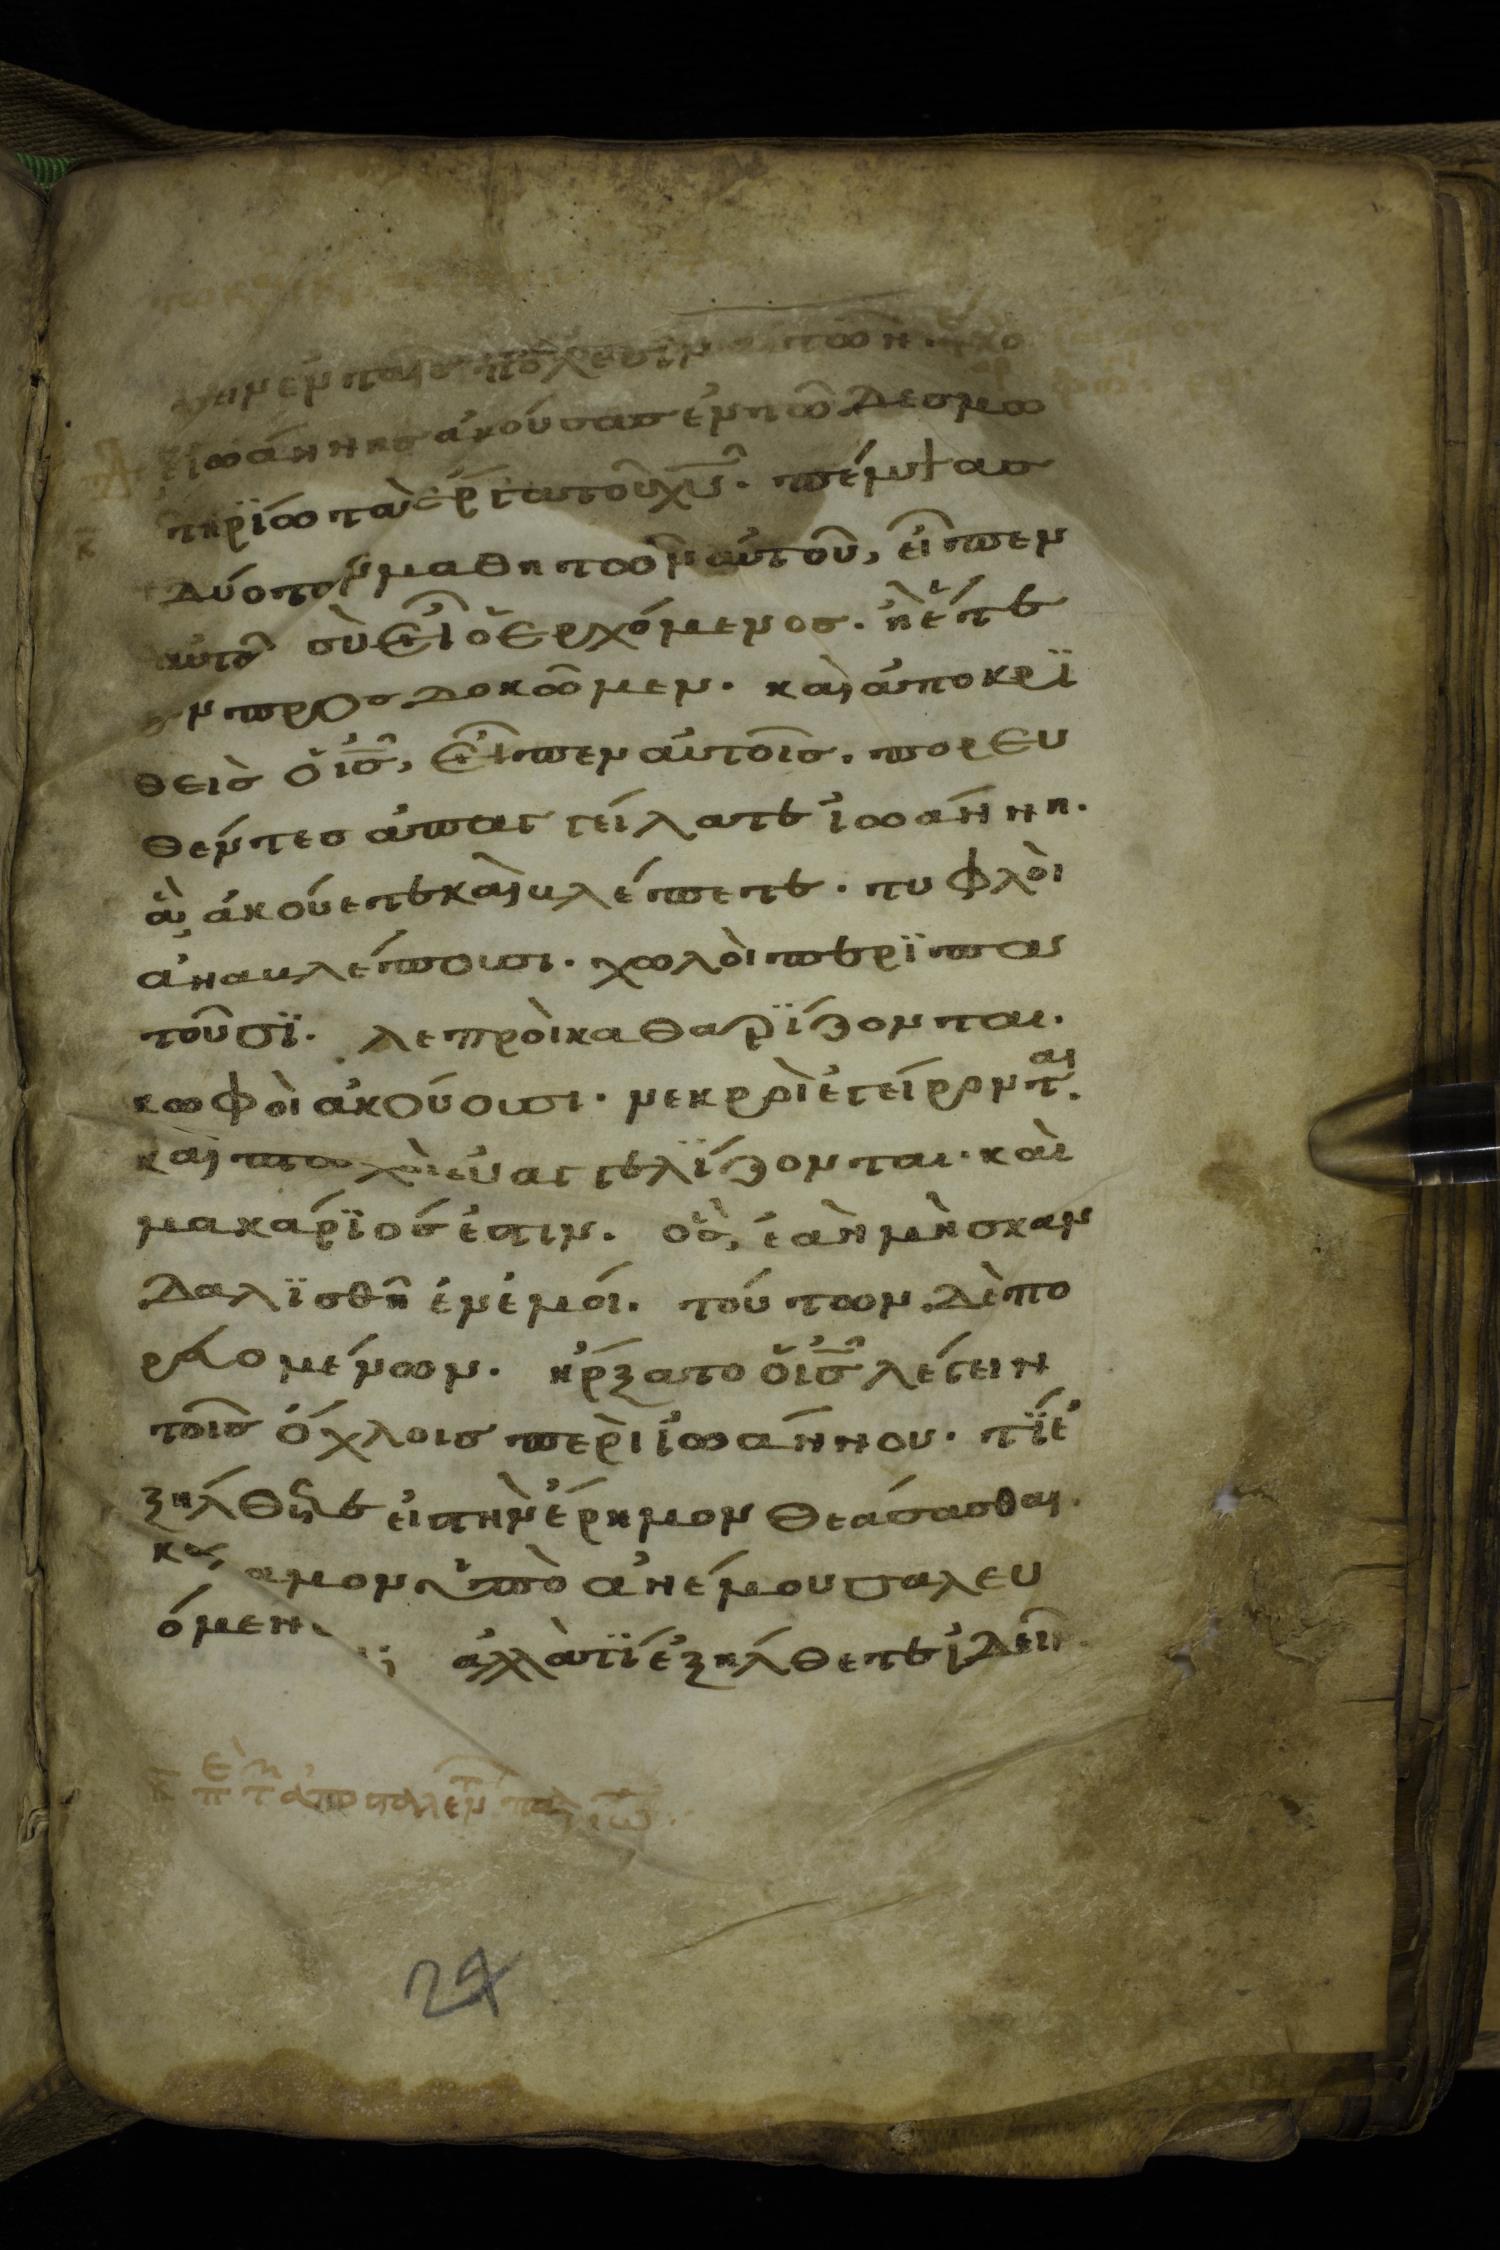 σειν ἐν ταῖς πόλεσιν αὐτῶν. ὁ δὲ
ἰωάννης ἀκούσας ἐν τῶ δεσμω
τηρΐω τὰ ἔργα τοῦ χυ̅. πέμψας
δύο τῶν μαθητῶν αὐτοῦ, εἶπεν
αὐτῶ σὺ εἶ ὁ ἐρχόμενος. ἢ ἕτε
ρον προσδοκῶμεν. καὶ ἀποκρϊ
θεὶς ὁ ις̅, εἶπεν αὐτοῖς. πορευ
θέντες ἀπαγγείλατε ἰωάννη.
ἃ ἀκούετε καὶ βλέπετε. τυφλοὶ
ἀναβλέπουσι. χωλοὶ περϊπα
τοῦσϊ. λεπροὶ καθαρΐζονται.
κωφοὶ ἀκούουσι. νεκροὶ ἐγείροντ̅αι.
καὶ πτωχοὶ εὐαγγελΐζονται. καὶ
μακάρϊός ἐστιν. ὃς, ἐὰν μὴ σκαν
δαλϊσθῆ ἐν ἐμοί. τούτων δὲ πο
ρευομένων. ἤρξατο ὁ ις̅ λέγειν
τοῖς ὄχλοις περὶ ἰωάννου. τΐ ἐ
ξήλθετε εἰς τὴν ἔρημον θεάσασθαι.
κάλαμον ὑπὸ ἀνέμου σαλευ
όμενον; ἀλλὰ τΐ ἐξήλθετε ἰδεῖν
24